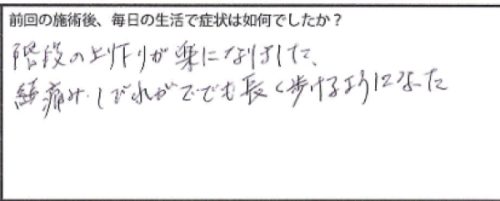 前回の施術後、毎日の生活で症状は如何でしたか？
階段の上り下りが楽になりました、
痛み・しびれがでても長く歩けるようになった